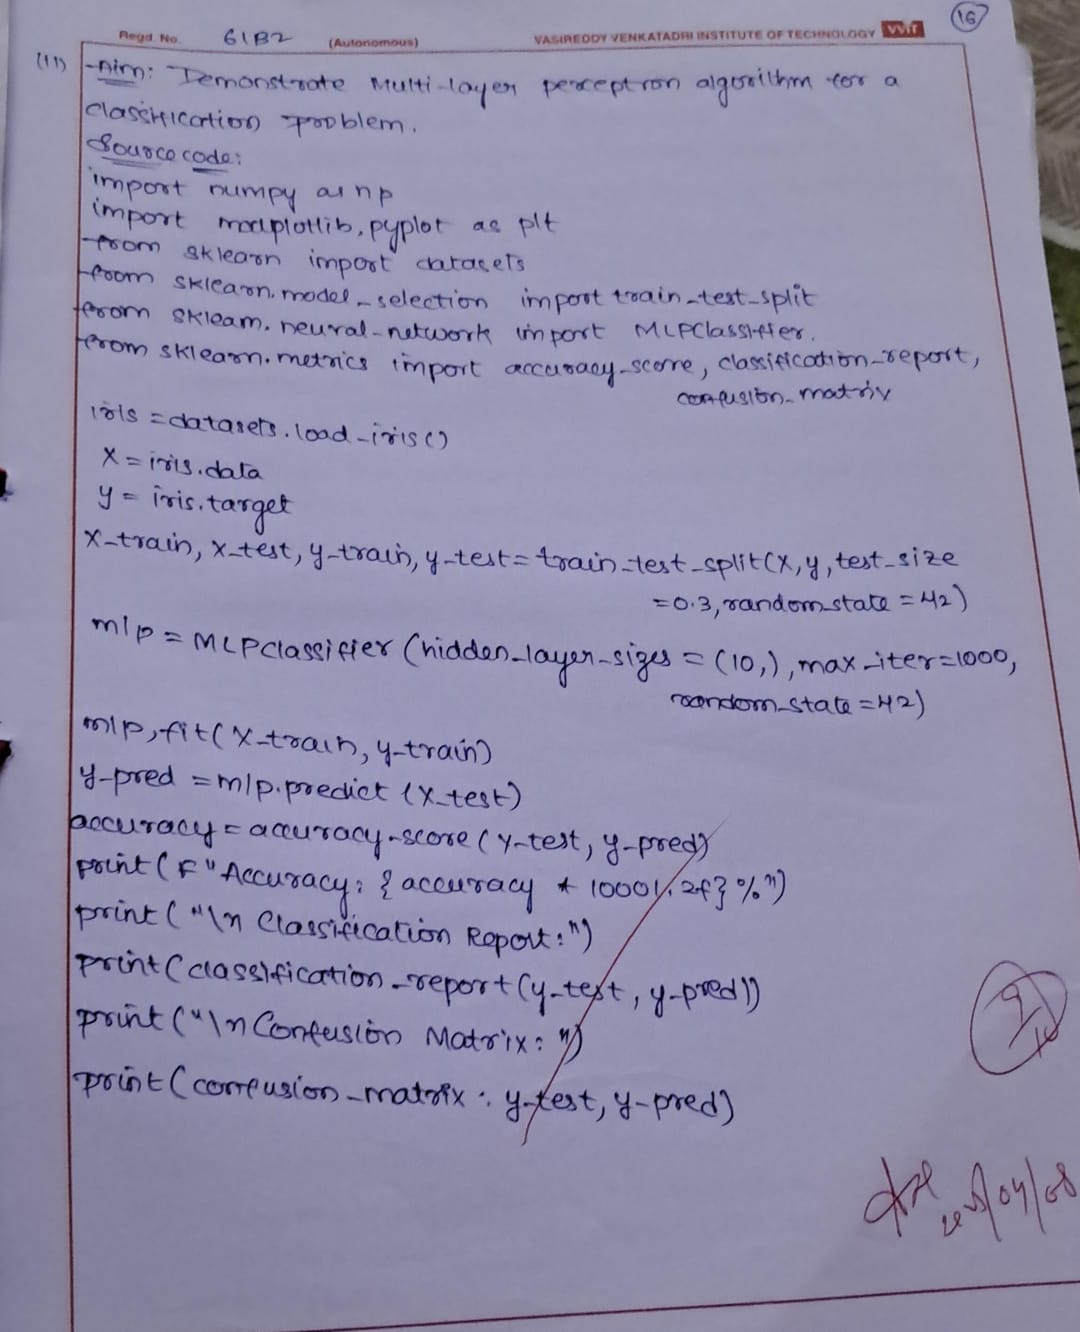 16
Regd. No. 61B2 (Autonomous) VASIREDDY VENKATADRI INSTITUTE OF TECHNOLOGY VVIT
(11) Aim: Demonstrate Multi-layer perceptron algorithm for a
classification problem.
Source code:
import numpy as np
import matplotlib.pyplot as plt
from sklearn import datasets
from sklearn.model_selection import train_test_split
from sklearn.neural-network import MLPClassifier.
from sklearn.metrics import accuracy_score, classification_report,
confusion_matrix
iris = datasets.load_iris()
X = iris.data
y = iris.target
X_train, X_test, y_train, y_test = train_test_split(X, y, test_size
=0.3, random_state = 42)
mlp = MLPClassifier (hidden_layer_sizes = (10,), max_iter=1000,
random_state = 42)
mlp.fit(X_train, y_train)
y_pred = mlp.predict (X_test)
accuracy = accuracy_score (y_test, y_pred)
print (F" Accuracy: { accuracy * 100 .2f} %")
print ("\n Classification Report:")
print (classification_report (y_test, y_pred))
print ("\n Confusion Matrix: ")
print (confusion_matrix : y_test, y_pred)
9/10